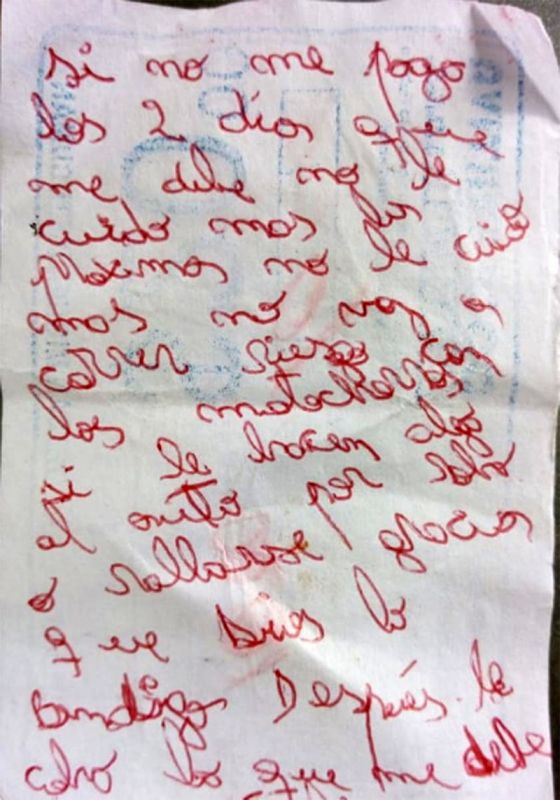 si no me pago
los 2 dias que
me debe no le
cuido mas los
proximos no le cuido
mas no voy a
correr riesgo con
los motochorros
si le hacen algo
al auto por robo
o rallarse gracias
que Dios lo
bendiga Después le
cobro lo que me debe